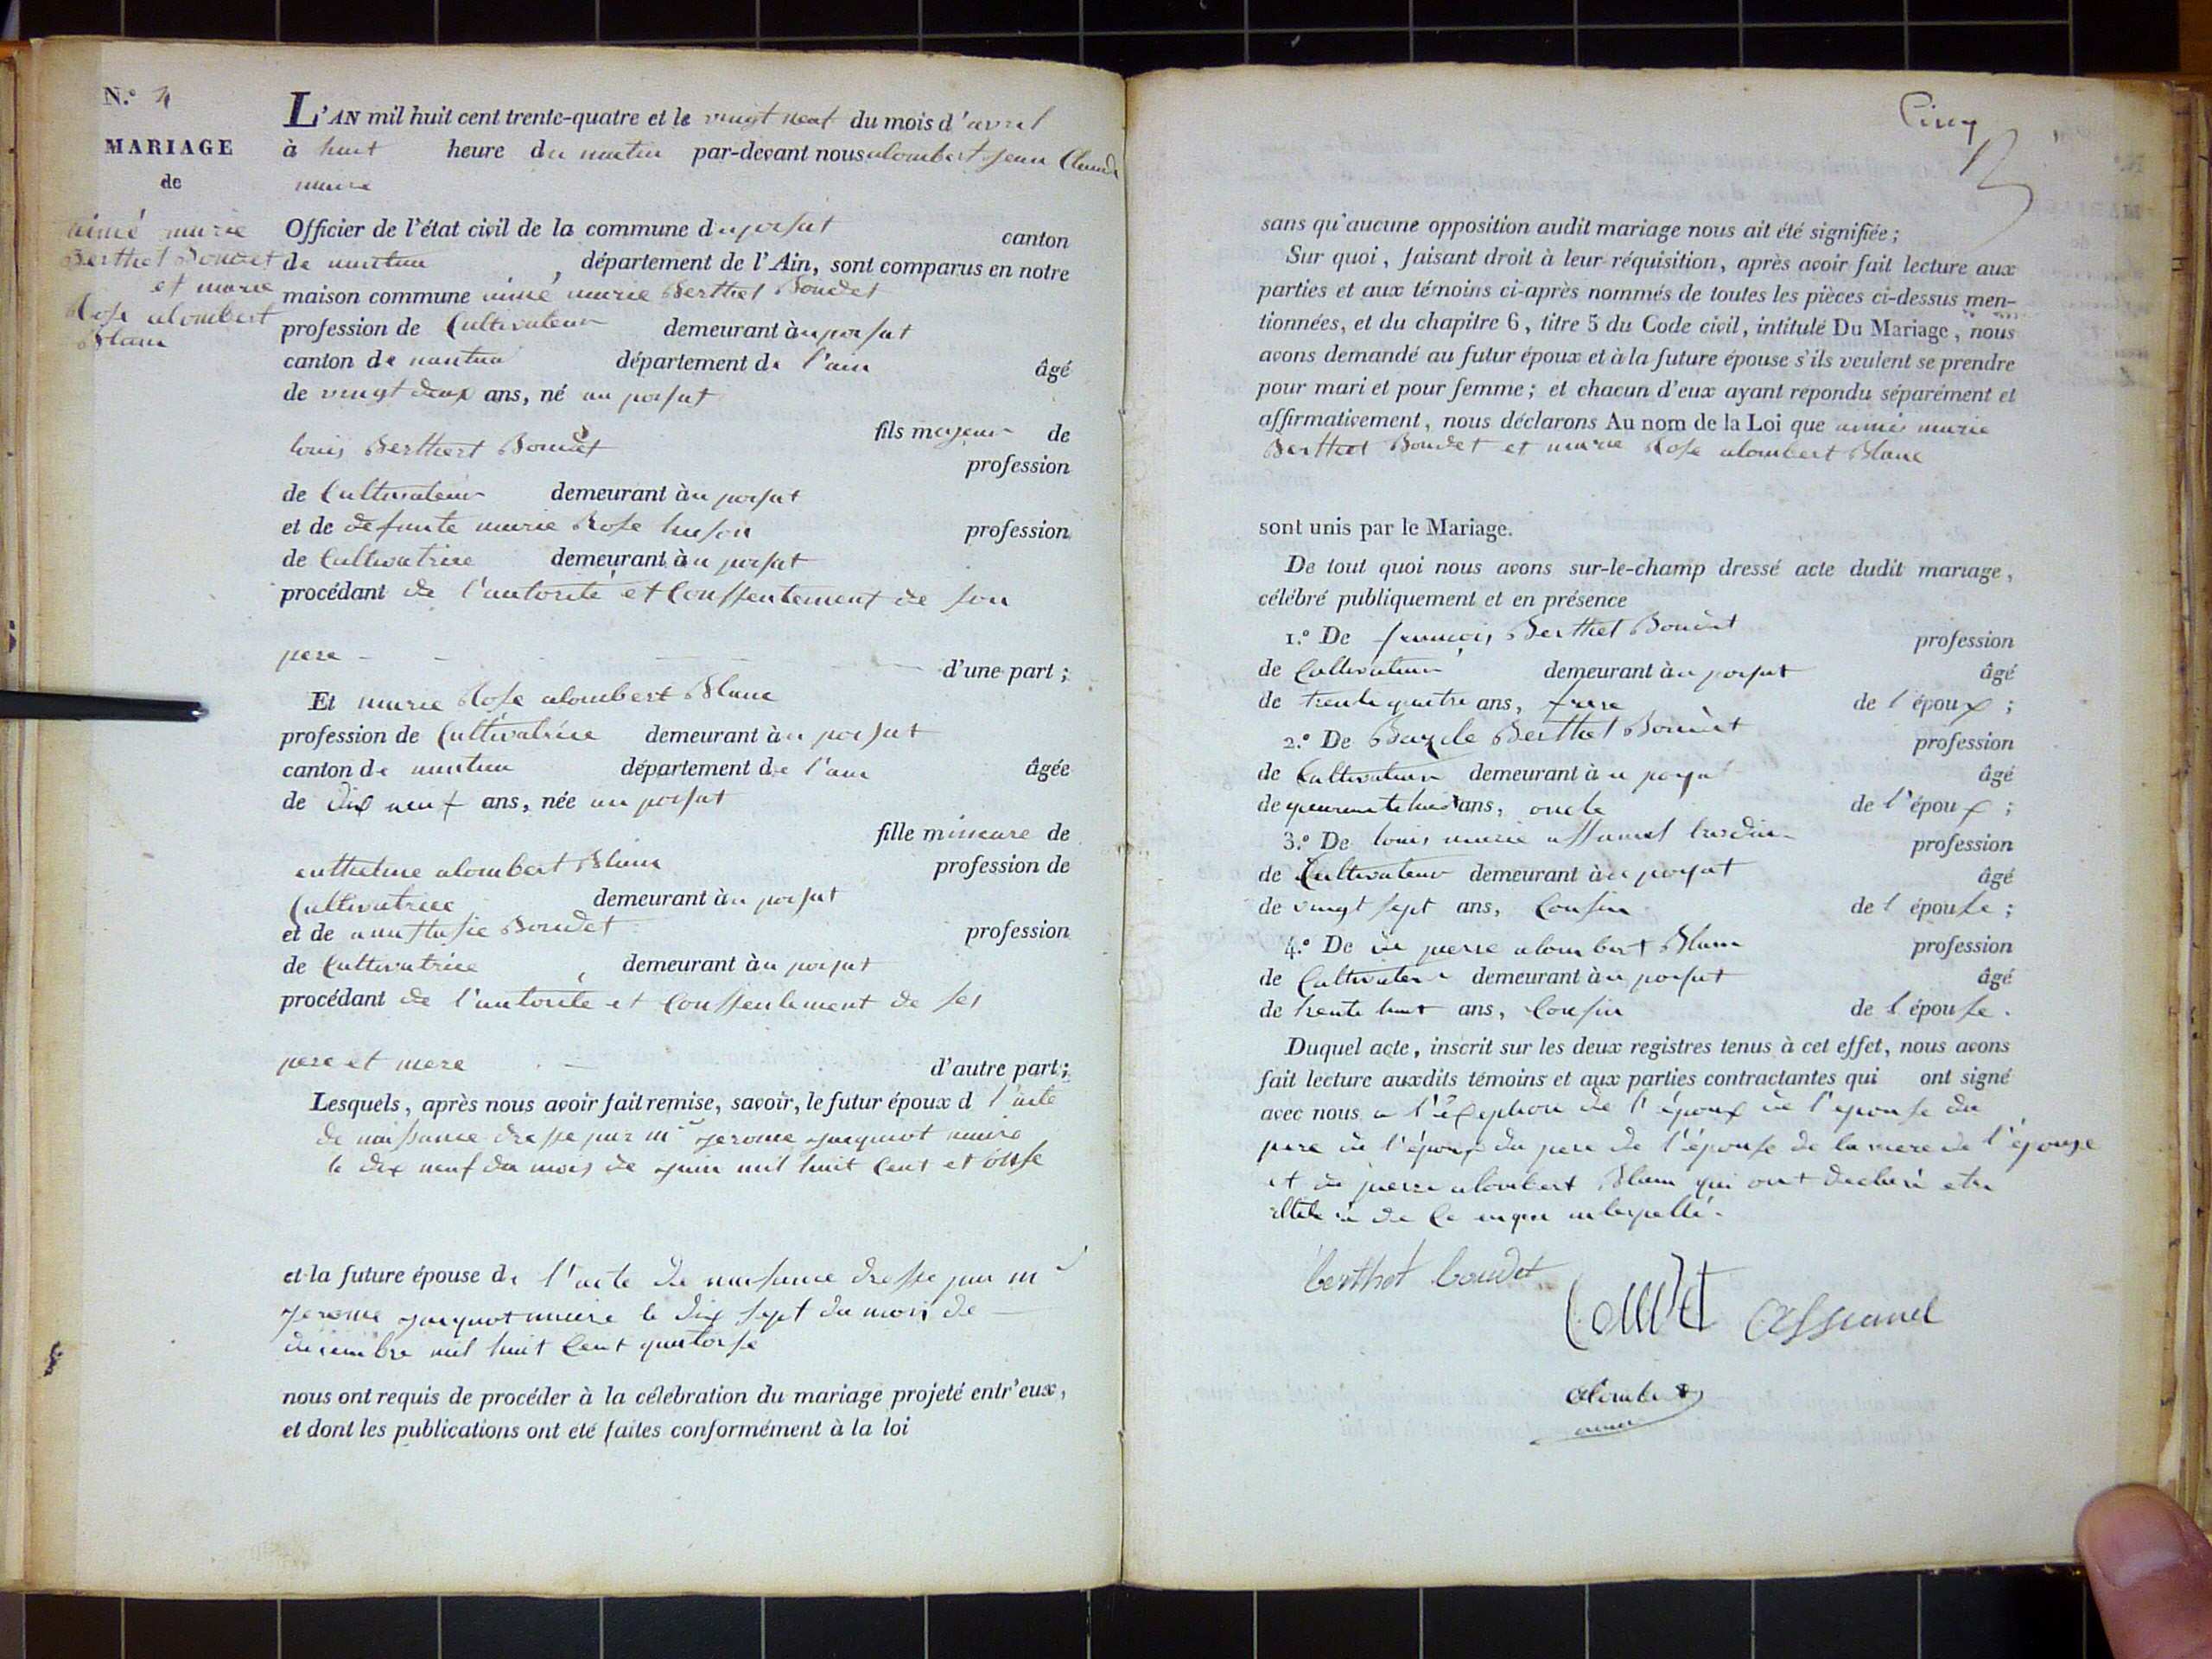 N.º 4
MARIAGE
de
aimé marie
Berthet Boudet
et marie
Rose alombert
Blanc
L'AN mil huit cent trente-quatre et le vingt neuf du mois d'avril
à huit heure du matin par-devant nous alombert jean Claude
maire
Officier de l'état civil de la commune du poisat canton
de nantua, département de l'Ain, sont comparus en notre
maison commune aimé marie Berthet Boudet
profession de Cultivateur demeurant à au poisat
canton de nantua département de l'ain âgé
de vingt deux ans, né au poisat
fils majeur de
louis Berthet Boudet
profession
de Cultivateur demeurant à au poisat
et de defunte marie Rose profession
de Cultivatrice demeurant à au poisat
procédant de l'autorité et Conssentement de son
pere d'une part ;
Et marie Rose alombert Blanc
profession de Cultivatrice demeurant à au poisat
canton de nantua département de l'ain âgée
de dix neuf ans, née au poisat
fille mineure de
alombert Blanc profession de
Cultivatrice demeurant à au poisat
et de annastasie Boudet profession
de Cultivatrice demeurant à au poisat
procédant de l'autorité et Conssentement de ses
pere et mere d'autre part ;
Lesquels, après nous avoir fait remise, savoir, le futur époux d l'acte
de naissance dresse par mr jerome jacquiot maire
le dix neuf du mois de juin mil huit Cent et onse
et la future épouse de l'acte de naissance dresse par mr
jerome jacquiot maire le dix sept du mois de
décembre mil huit Cent quatorse
nous ont requis de procéder à la célebration du mariage projeté entr'eux,
et dont les publications ont été faites conformément à la loi
Cinq
sans qu'aucune opposition audit mariage nous ait été signifiée ;
Sur quoi, faisant droit à leur réquisition, après avoir fait lecture aux
parties et aux témoins ci-après nommés de toutes les pièces ci-dessus men-
tionnées, et du chapitre 6, titre 5 du Code civil, intitulé Du Mariage, nous
avons demandé au futur époux et à la future épouse s'ils veulent se prendre
pour mari et pour femme ; et chacun d'eux ayant répondu séparément et
affirmativement, nous déclarons Au nom de la Loi que aimé marie
Berthet Boudet et marie Rose alombert Blanc
sont unis par le Mariage.
De tout quoi nous avons sur-le-champ dressé acte dudit mariage,
célébré publiquement et en présence
1.º De francois Berthet Boudet profession
de Cultivateur demeurant à au poisat âgé
de trente quatre ans, frere de l'époux ;
2.º De Bazile Berthet Boudet profession
de Cultivateur demeurant à au poisat âgé
de quarante huit ans, oncle de l'époux ;
3.º De louis marie assumel profession
de Cultivateur demeurant à au poisat âgé
de vingt sept ans, Cousin de l épouse ;
4.º De pierre alombert Blanc profession
de Cultivateur demeurant à au poisat âgé
de trente huit ans, Cousin de l épouse .
Duquel acte, inscrit sur les deux registres tenus à cet effet, nous avons
fait lecture auxdits témoins et aux parties contractantes qui ont signé
avec nous a l'éxception de l'époux de l'epouse du
pere de l'époux du pere de l'épouse de la mere de l'épouse
et de pierre alombert Blanc qui ont declaré etre
de Ce enquis interpellé.
berthet boudet
Boudet
assumel
alombert
maire